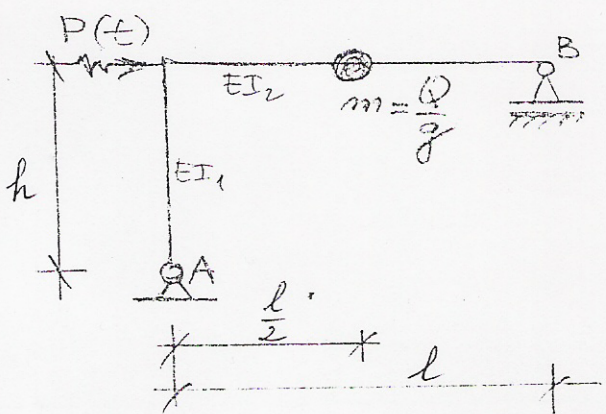 P(t)
EI₂
m = Q/g
B
h
EI₁
A
l/2
l